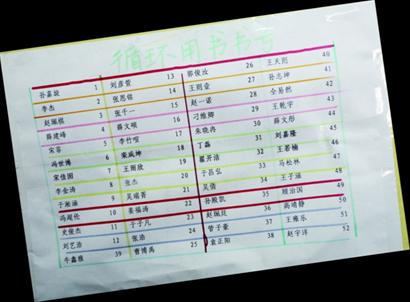 循环用书书号
孙嘉璇 1 刘彦萱 13 郭俊汝 26 王天阳 40
李杰 2 张思铭 14 王雨壹 27 孙志坤 41
赵珮棋 3 张千一 15 赵一诺 28 仝易然 42
薛建峰 4 薛文硕 16 刁维卿 29 王乾宇 43
宋蓉 5 李竹喧 17 朱晓冉 30 薛文彤 44
冯世博 6 栾斌坤 18 丁磊 31 刘嘉隆 45
宋佳图 7 王雨欣 19 翟开洁 32 王若楠 46
李金涛 8 张杰 20 于昌弘 33 马松林 47
于湘涵 9 吴瑞菁 21 吴倩 34 王子涵 48
冯赵伦 10 姜福涛 22 孙殿凯 35 顾治国 49
史俊杰 11 于子凡 23 赵珮廷 36 高靖静 50
刘艺浩 12 张浩 24 管子豪 37 王雍乐 51
牛鑫雅 39 曹博禹 25 袁正阳 38 赵宇洋 52